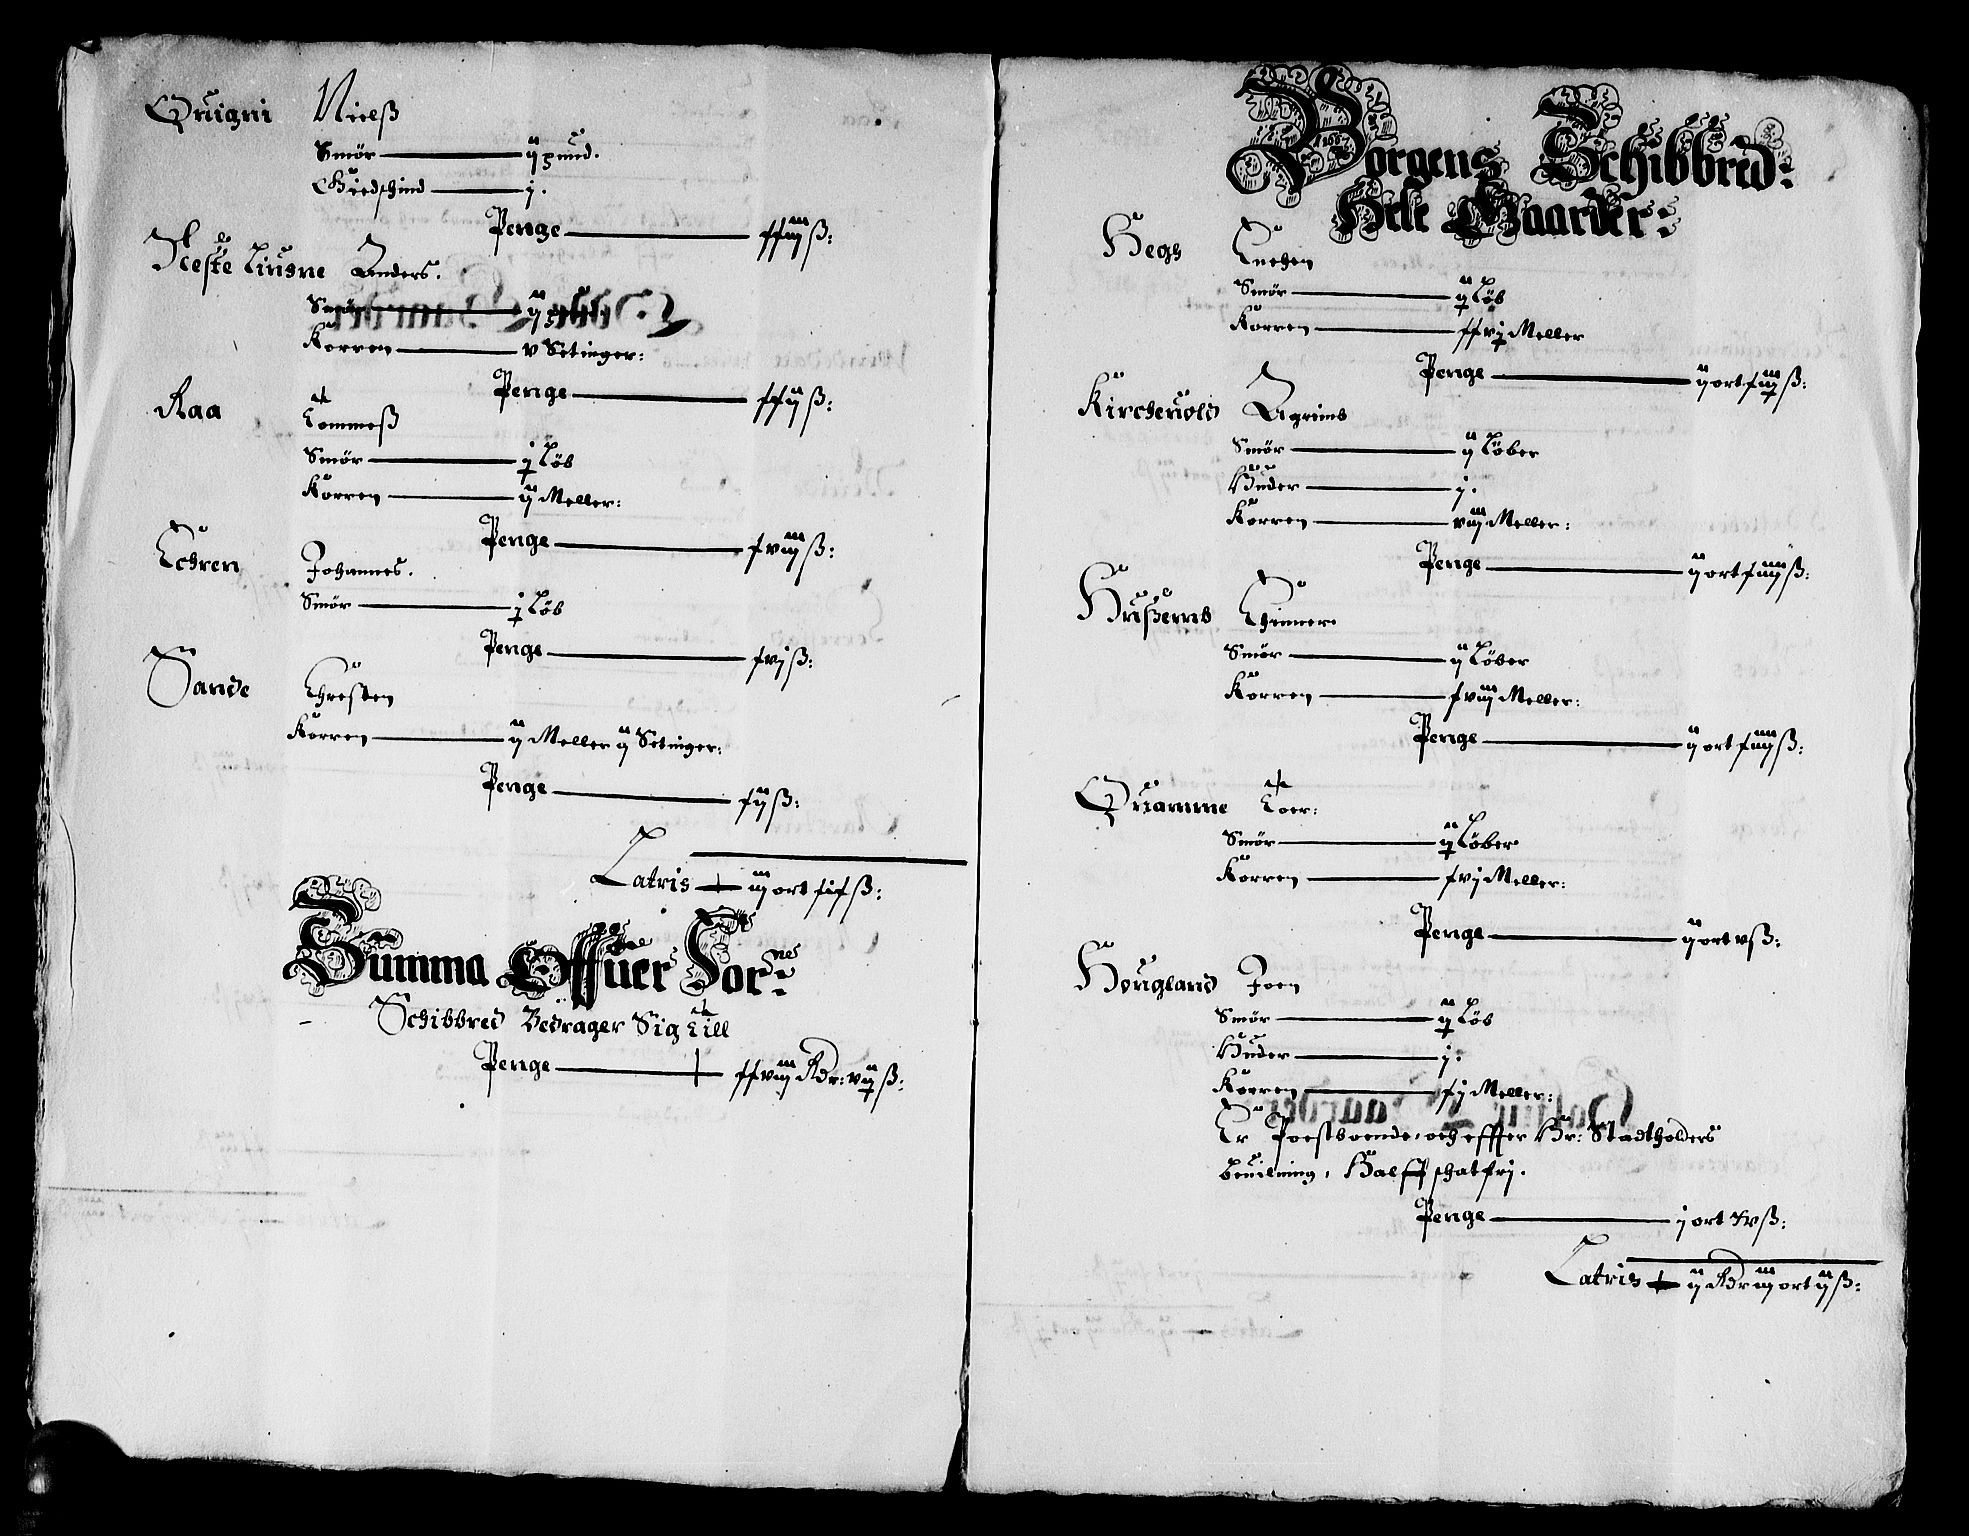 Quigni Nielß
Smör — ij pund.
Giedschind — j.
Penge — xxiiij ß:
Neste Liusne Anders.
Smör — ij
Korren — v Setinger:
Penge — xxij ß:
Raa Tommeß
Smör — j Löb
Korren — ij Meller:
Penge — xviij ß:
Echren Johannes.
Smör — j Löb
Penge — xvj ß:
Sande Chresten
Korren — ij Meller ij Setinger:
Penge — xij ß:
Latris — iij ort xix ß:
Summa Offuer Jor:ne
Schibbred Bedrager Sig till
Penge — xxviij Rdr: vij ß:
Borgens Schibbred:
Hele Gaarder:
Hegh Knehen
Smör — ij Löb
Korren — xxvj Meller
Penge — ij ort xiij ß:
Kircheuold Agrimb
Smör — ij Löber
Huder — j.
Korren — viij Meller:
Penge — ij ort xiiij ß:
Hußemb Einner
Smör — ij Löber
Korren — xviij Meller:
Penge — ij ort xiiij ß:
Quamme Toer:
Smör — ij Löber
Korren — xvj Meller:
Penge — ij ort v ß:
Hougland Joen
Smör — ij Löb
Huder — j.
Korren — xij Meller:
Er Postboende, och effter Hr: Stadtholders
beuilning, Halff schatfrj.
Penge — j ort xv ß:
Latris — ij Rdr iij ort ij ß: